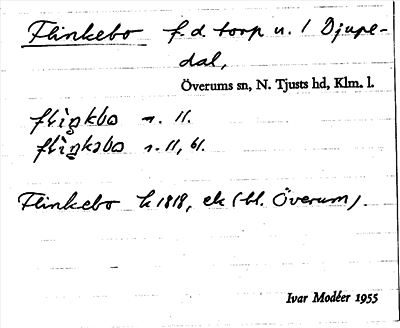 Flinkebo f.d. torp u. 1 Djupe-
dal,
Överums sn, N. Tjusts hd, Klm. l.
n. 11.
n. 11, 61.
Flinkebo k 1818, ek (bl. Överum).
Ivar Modéer 1955